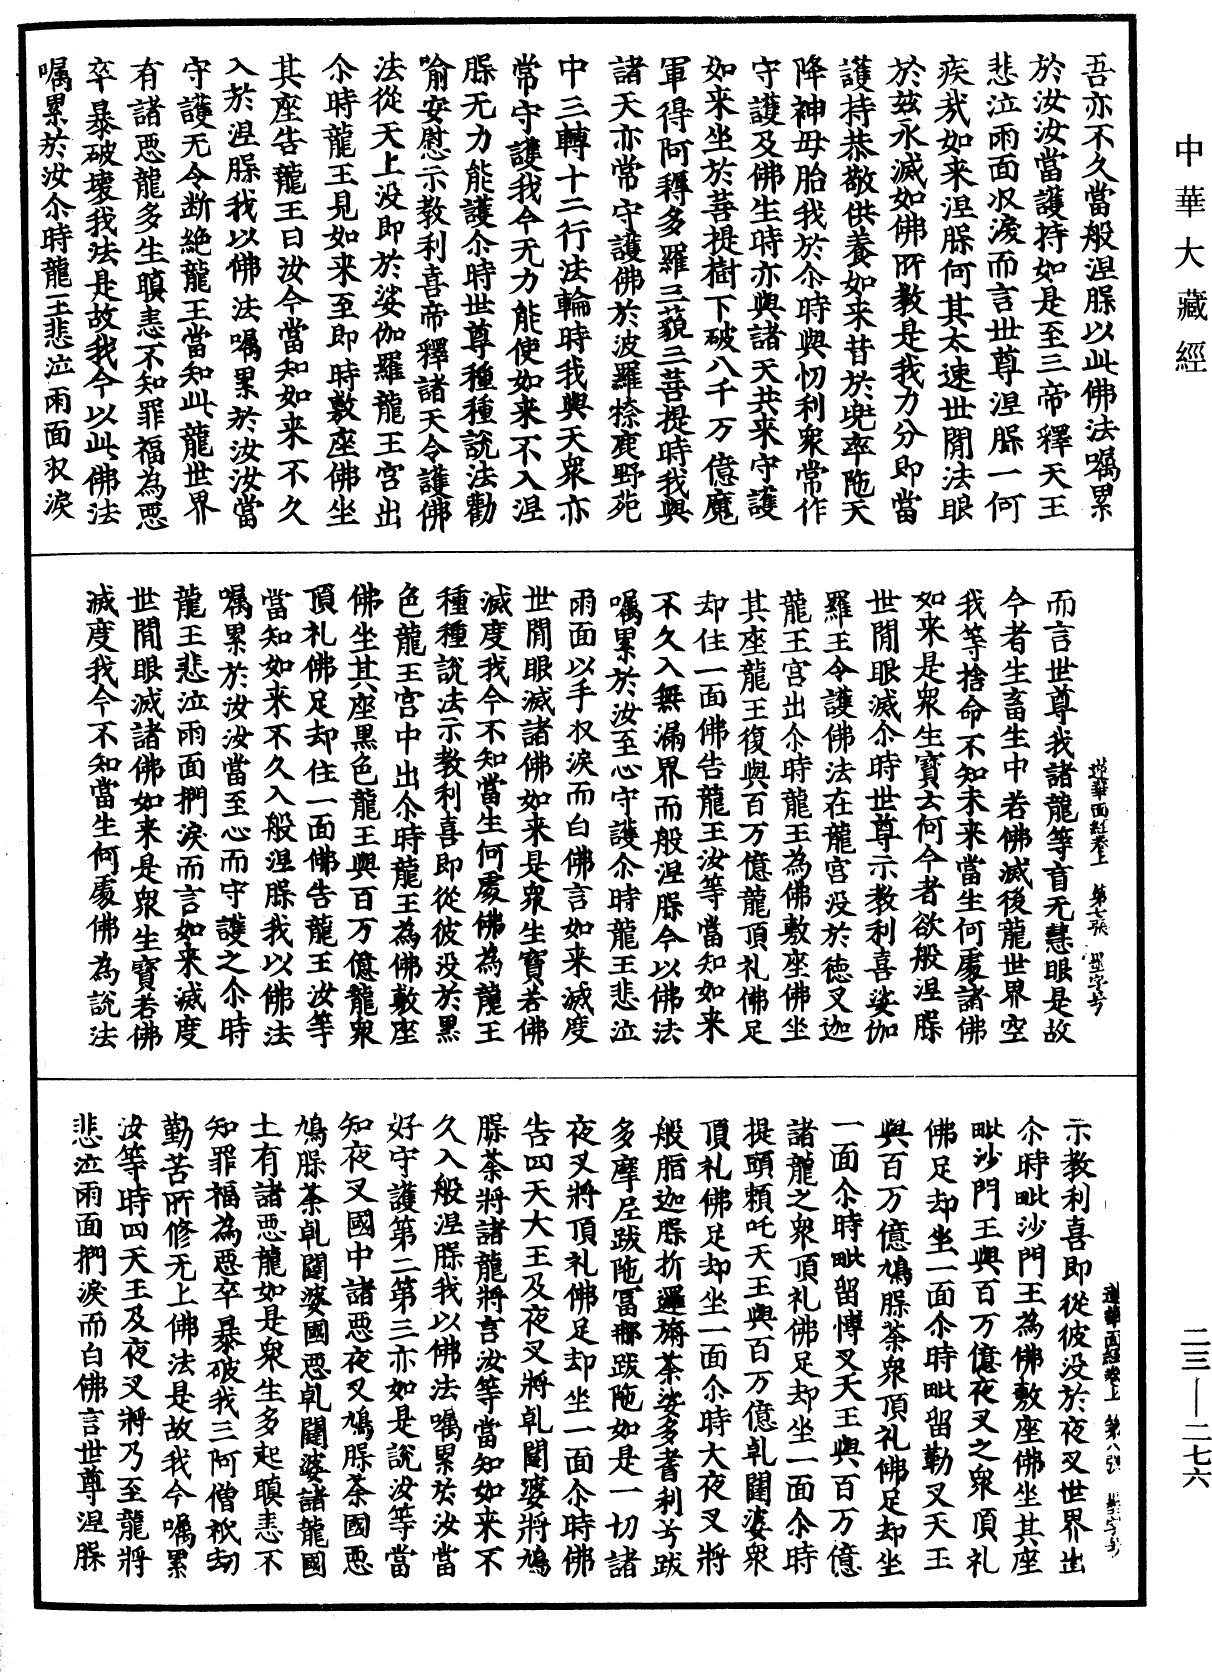 中華大藏經
吾亦不久當般涅槃以此佛法嘱累
於汝汝當護持如是至三帝釋天王
悲泣雨面収淚而言世尊涅槃一何
疾㢤如来涅槃何其太速世間法眼
於兹永滅如佛所教是我力分即當
護持恭敬供養如来昔於兜率陁天
降神母胎我於尒時與忉利衆常作
守護及佛生時亦與諸天共来守護
如来坐於菩提樹下破八千万億魔
軍得阿耨多羅三藐三菩提時我與
諸天亦常守護佛於波羅㮈鹿野苑
中三轉十二行法輪時我與天衆亦
常守護我今无力能使如来不入涅
槃无力能護尒時世尊種種說法勸
喻安慰示教利喜帝釋諸天令護佛
法從天上没即於娑伽羅龍王宮出
尒時龍王見如来至即時敷座佛坐
其座告龍王曰汝今當知如来不久
入於涅槃我以佛法嘱累於汝汝當
守護无令断絶龍王當知此龍世界
有諸惡龍多生瞋恚不知罪福為惡
卒暴破壞我法是故我今以此佛法
嘱累於汝尒時龍王悲泣雨面収淚
而言世尊我諸龍等盲无慧眼是故
今者生畜生中若佛滅後龍世界空
我等捨命不知未来當生何處諸佛
如来是衆生寶云何今者欲般涅槃
世間眼滅尒時世尊示教利喜娑伽
羅王令護佛法在龍宮没於徳叉迦
龍王宮出尒時龍王為佛敷座佛坐
其座龍王復與百万億龍頂礼佛足
却住一面佛告龍王汝等當知如来
不久入無漏界而般涅槃今以佛法
嘱累於汝至心守護尒時龍王悲泣
雨面以手収淚而白佛言如来滅度
世間眼滅諸佛如来是衆生寶若佛
滅度我今不知當生何處佛為龍王
種種說法示教利喜即從彼没於黒
色龍王宮中出尒時龍王為佛敷座
佛坐其座黒色龍王與百万億龍衆
頂礼佛足却住一面佛告龍王汝等
當知如来不久入般涅槃我以佛法
嘱累於汝汝當至心而守護之尒時
龍王悲泣雨面捫淚而言如来滅度
世間眼滅諸佛如来是衆生寶若佛
滅度我今不知當生何處佛為說法
蓮華面經卷上 第七張
示教利喜即從彼没於夜叉世界出
尒時毗沙門王為佛敷座佛坐其座
毗沙門王與百万億夜叉之衆頂礼
佛足却坐一面尒時毗留勒叉天王
與百万億鳩槃荼衆頂礼佛足却坐
一面尒時毗留愽叉天王與百万億
諸龍之衆頂礼佛足却坐一面尒時
提頭頼吒天王與百万億乹闥婆衆
頂礼佛足却坐一面尒時大夜叉將
般脂迦槃折邏旃荼娑多耆利芳跋
多摩尼跋陁冨那跋陁如是一切諸
夜叉將頂礼佛足却坐一面尒時佛
告四天大王及夜叉將乹闥婆將鳩
槃荼將諸龍將言汝等當知如来不
久入般涅槃我以佛法嘱累於汝當
好守護第二第三亦如是說汝等當
知夜叉國中諸惡夜叉鳩槃荼國惡
鳩槃荼乹闥婆國惡乹闥婆諸龍國
土有諸惡龍如是衆生多起瞋恚不
知罪福為惡卒暴破我三阿僧祇劫
勤苦所修无上佛法是故我今嘱累
汝等時四天王及夜叉將乃至龍將
悲泣雨面捫淚而白佛言世尊涅槃
蓮華面經卷上 第八張
二三—二七六